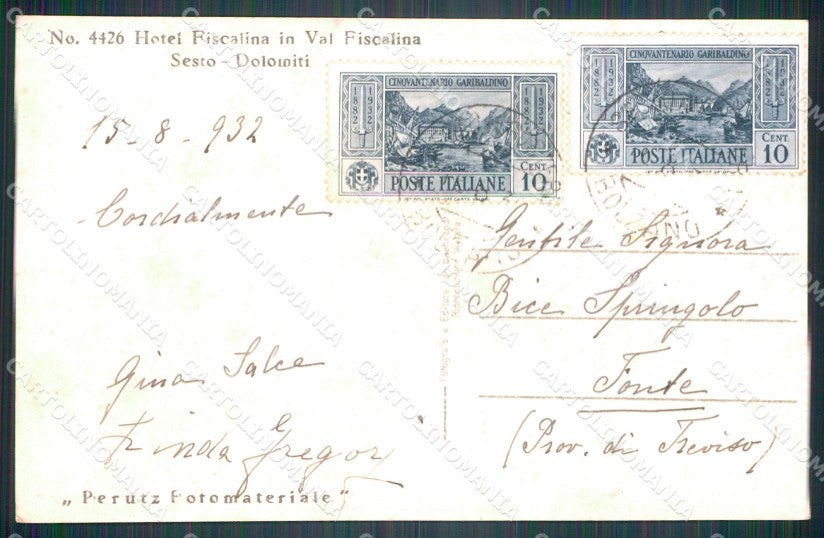 No. 4426 Hotel Fiscalina in Val Fiscalina
Sesto - Dolomiti
CINQVANTENARIO GARIBALDINO
1882
1932
CENT.
10
POSTE ITALIANE
CINQVANTENARIO GARIBALDINO
1882
1932
CENT.
10
POSTE ITALIANE
BOLZANO
15-8-932
Cordialmente
Gina Salce
Gentile Signora
Bice Springolo
Fonte
(Prov. di Treviso)
„Perutz Fotomateriale"
CARTOLINOMANIA